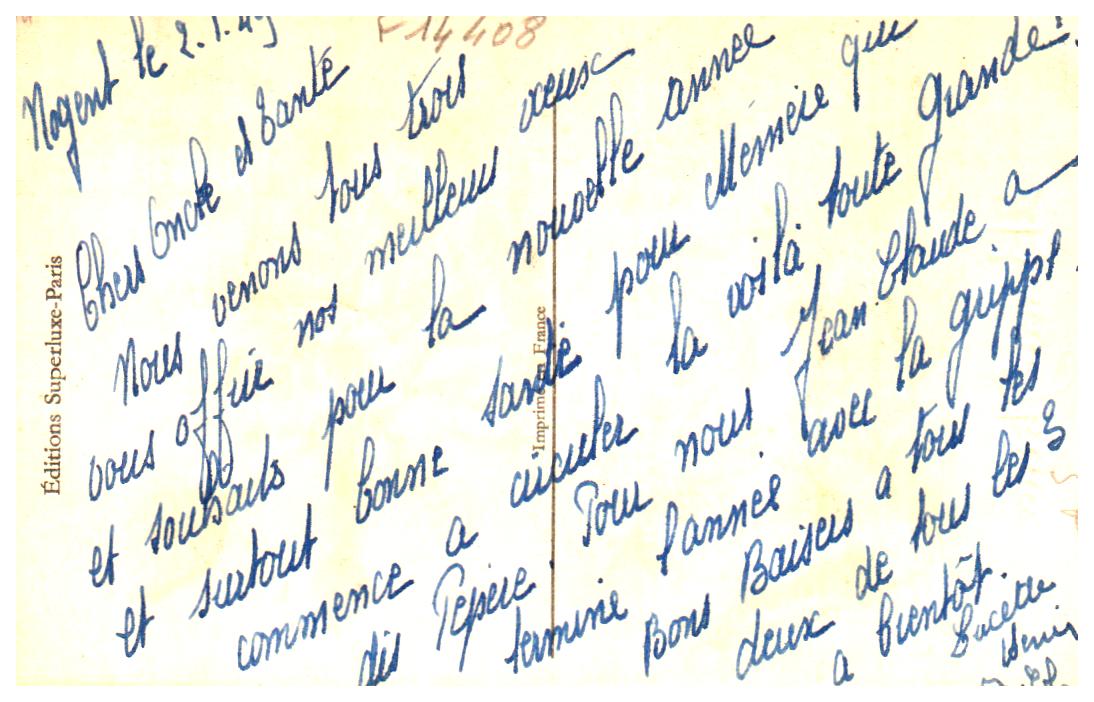 F 14408
Nogent le 2.1.49
Chers Oncle et Tante
Nous venons tous trois
vous offrir nos meilleurs vœux
et souhaits pour la nouvelle année
et surtout bonne santé pour Mémère que
commence a circuler la voilà toute grande!
dis Pépère. Pour nous Jean.Claude a
terminé l'année avec la grippe.
Bons Baisers a tous les
deux de tous les 3
a bientôt.
Lucette
Henri
Éditions Superluxe-Paris
Imprimé en France